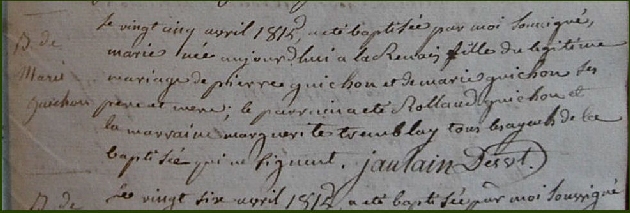 B de
Marie
guichon
le vingt cinq avril 1812, a été baptisée par moi soussigné,
marie née aujourdhui a la fille du légitime
mariage de pierre guichon et de marie guichon ses
pere et mere; le parrain a été Rolland guichon et
la marraine marguerite tremblay tous de la
baptisée qui ne signent. jaulain Desst
B de
Le vingt six avril 1812, a été baptisée par moi soussigné